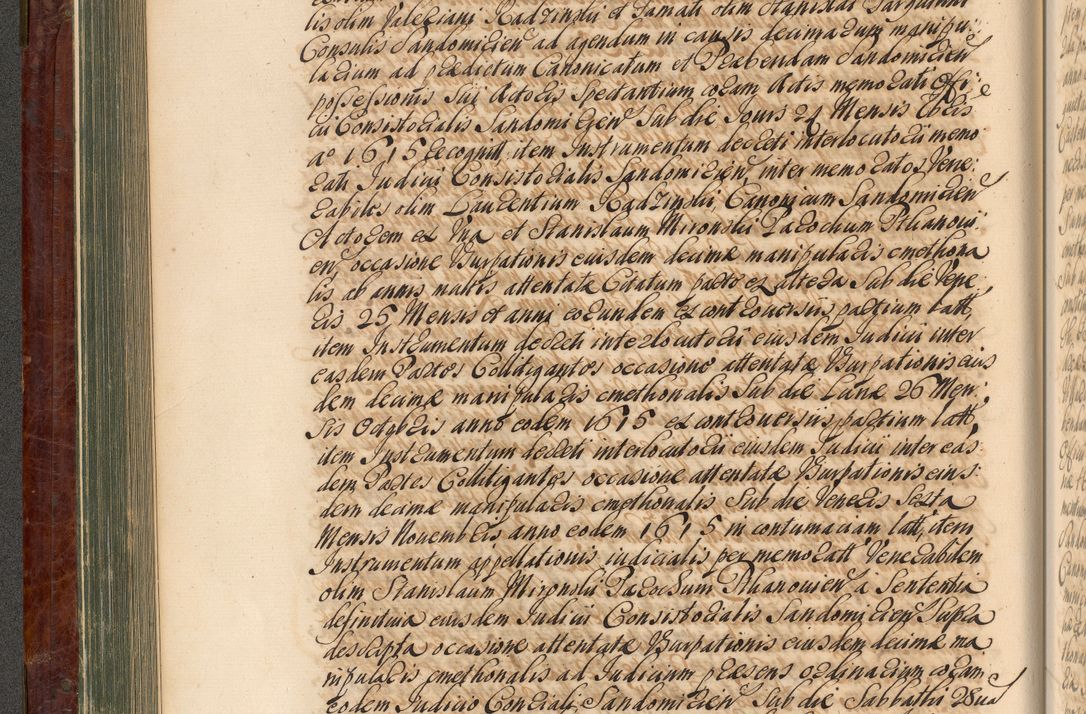 lis olim Valeriani Radzinskii et Famati olim Stanislai
Consulis Sandomirien̄ ad agendum in causis decimarum manipu:
larium ad prædictum Canonicatum et Præbendam Sandomirien̄
possessionis sui Actoris spectantium coram Actis memorati Offi:
cii Consistorialis Sandomirien̄ Sub die Jovis 24 Mensis
aᵒ 1615 recognit, item Instrumentum decreti interlocutorii memo
rati Judicii Consistorialis Sandomirien̄, inter memoratos Vene:
rabiles olim Laurentium Radzinskii Canonicum Sandomirien̄
Actorem ex Una et Stanislaum Mironskii Parochum Pthanovi
en̄, occasione Usurpationis eiusdem decimæ manipularis cmethona
lis ab annis multis attentatæ Citatum parte ex altera Sub die Vene
ris 25 Mensis et anni eorundem ex controversiis partium latt,
item Instrumentum decreti interlocutorii eiusdem Judicii inter
easdem Partes Collitigantes occasione attentatæ Usurpationis eius
dem decimæ manipularis cmethonalis Sub die Lunæ 26 Men:
sis Octobris anno eodem 1615 ex controversiis partium latt,
item Instrumentum decreti interlocutorii eiusdem Judicii inter eas
dem Partes Collitigantes occasione attentatæ Usurpationis eius:
dem decimæ manipularis cmethonalis Sub die Veneris Sexta
Mensis Novembris anno eodem 1615 in contumaciam latt, item
Instrumentum appellationis iudicialis per memoratt Venerabilem
olim Stanislaum Mironskii Parochum Pthanovien̄ a Sententia
definitiva eiusdem Judicii Consistorialis Sandomirien̄ Supra
descripta occasione attentatæ Usurpationis eiusdem decimæ ma
nipularis cmethonalis ad Judicium præsens ordinarium coram
eodem Judicio Sandomirien̄ Sub die Sabbathi